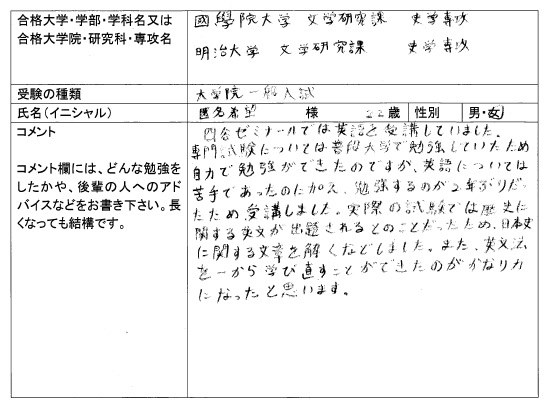 合格大学・学部・学科名又は
合格大学院・研究科・専攻名
國學院大學 文学研究課 史学専攻
明治大学 文学研究課 史学専攻
受験の種類
大学院一般入試
氏名（イニシャル）
匿名希望 様 22歳 性別 男・女
コメント
コメント欄には、どんな勉強を
したかや、後輩の人へのアド
バイスなどをお書き下さい。長
くなっても結構です。
四谷ゼミナールでは英語を受講していました。
専門試験については普段大学で勉強していたため
自力で勉強ができたのですが、英語については
苦手であったのに加え、勉強するのが2年ぶりだっ
たため受講しました。実際の試験では歴史に
関する英文が出題されるとのことだったため、日本史
に関する文章を解くなどしました。また、英文法
を一から学び直すことができたのがかなり力
になったと思います。